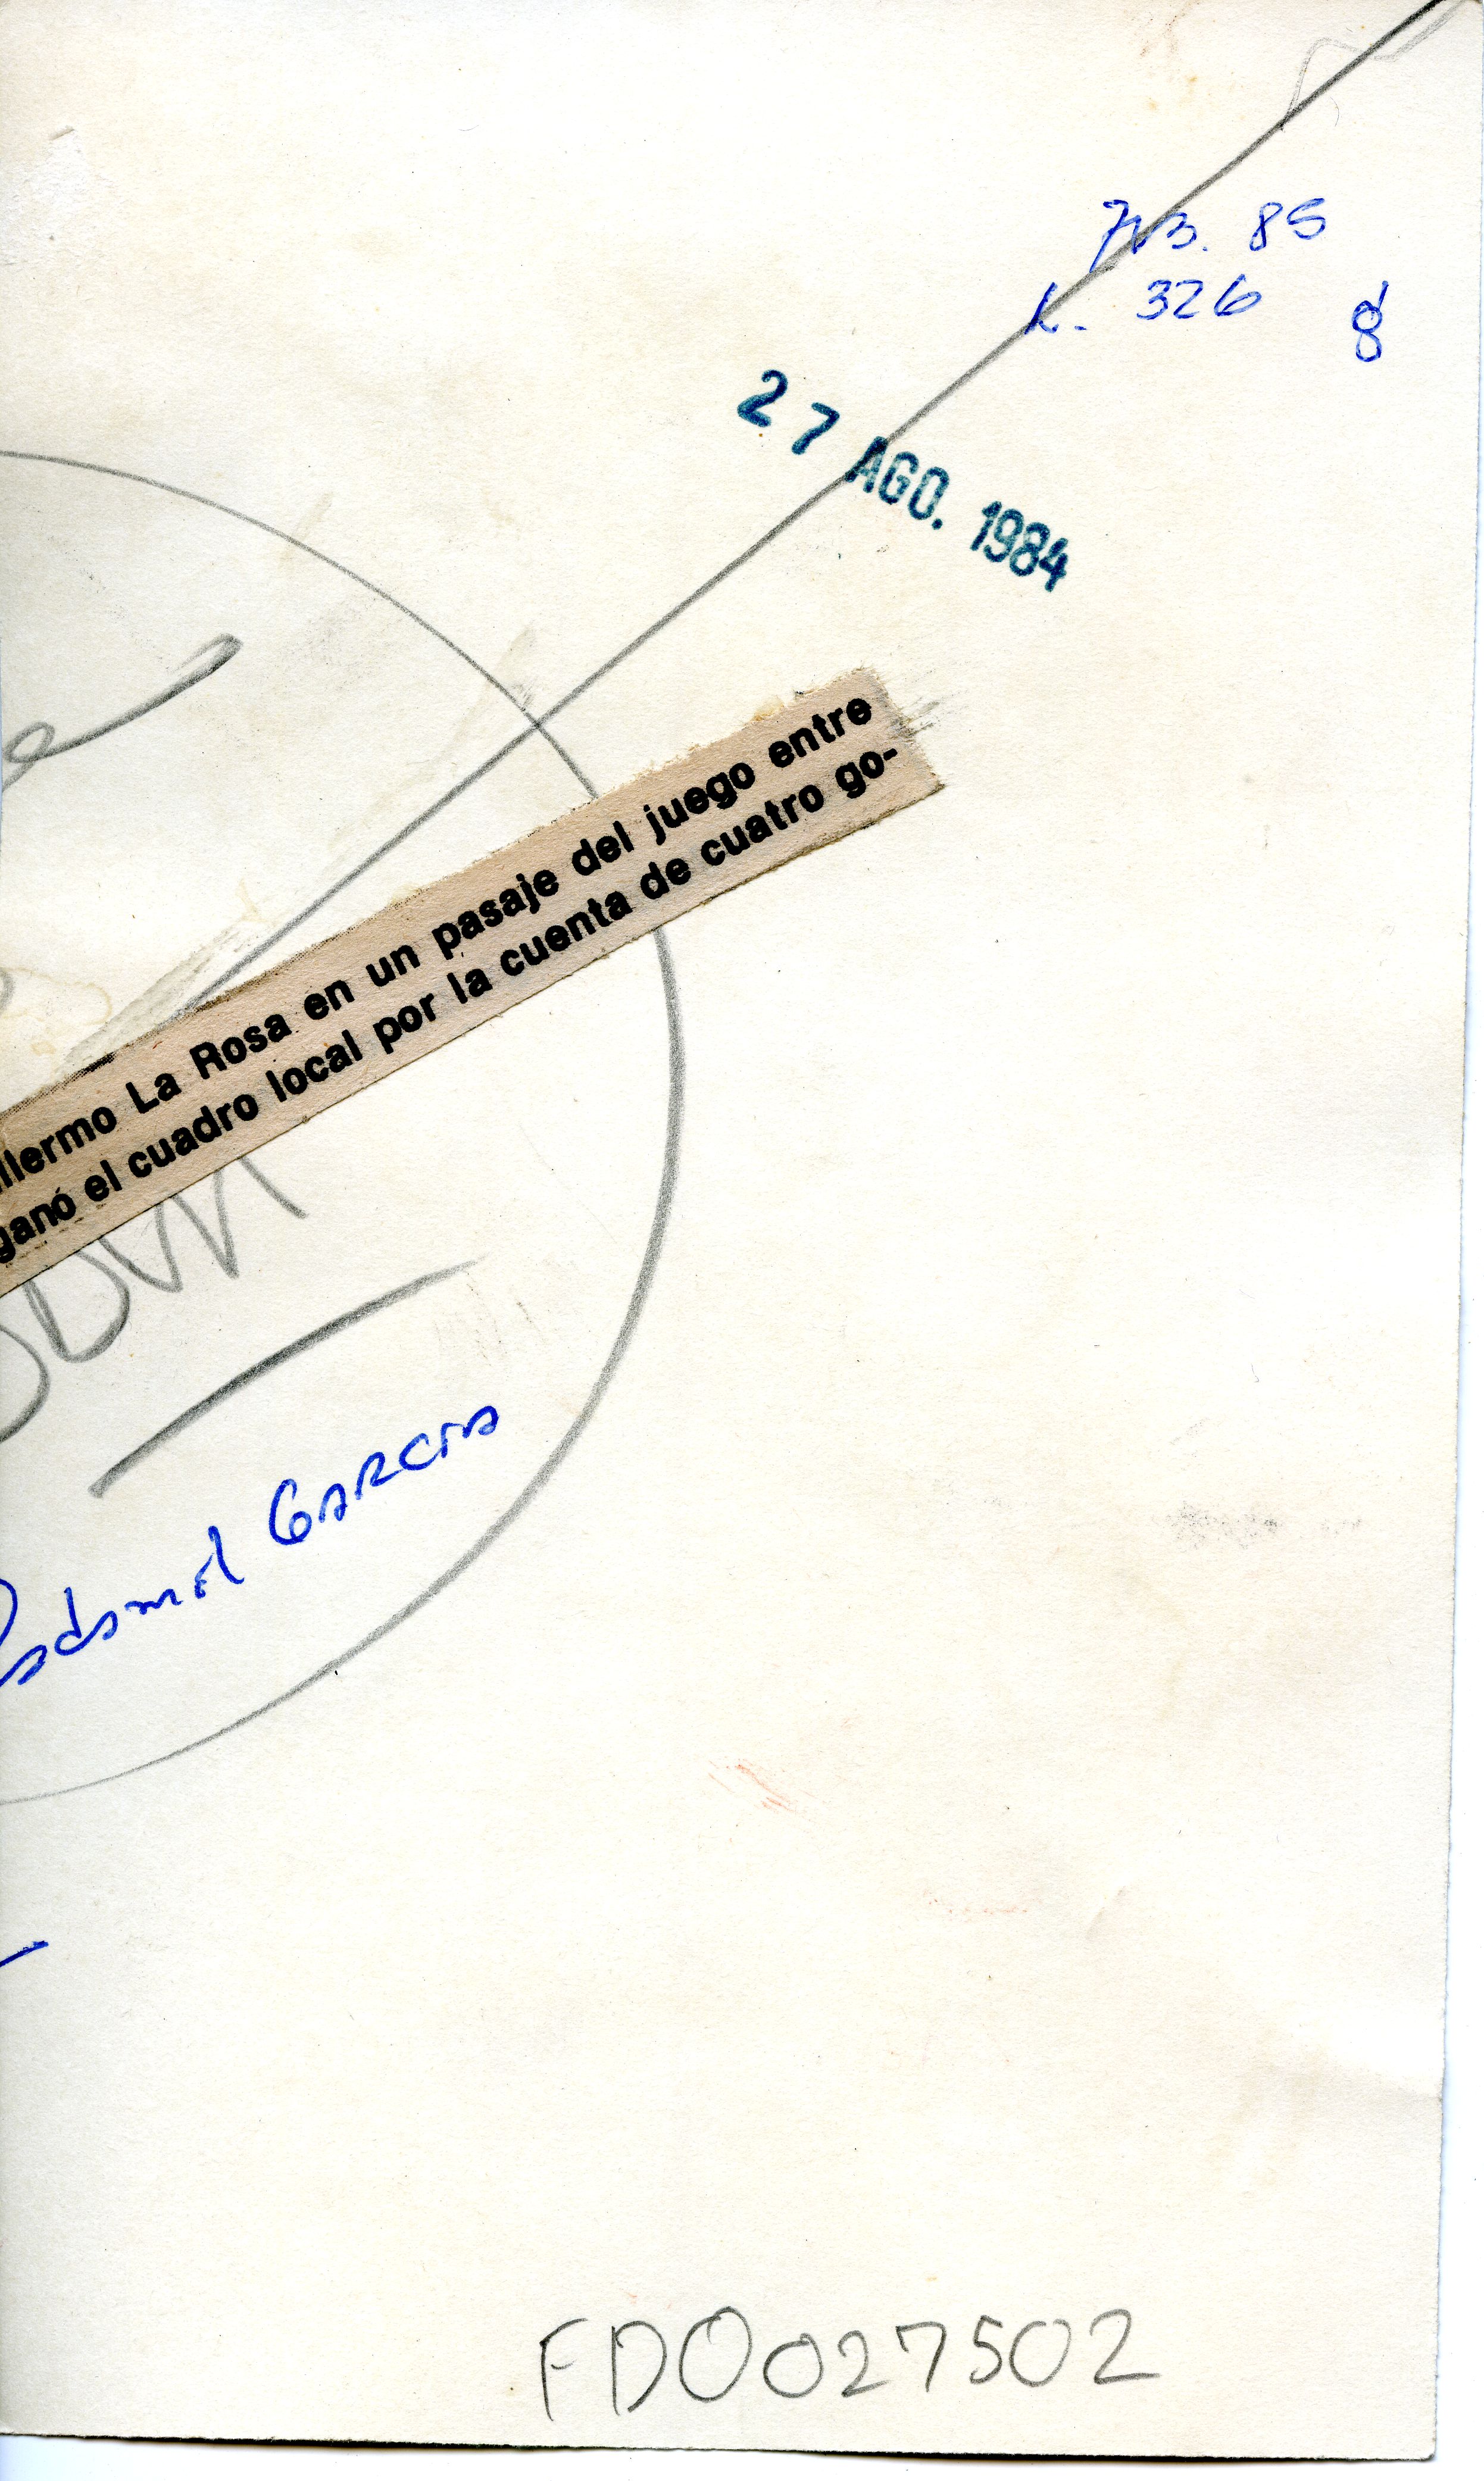 85
326
27 AGO. 1984
llermo La Rosa en un pasaje del juego entre
ganó el cuadro local por la cuenta de cuatro go-
GARCIA
FDO027502